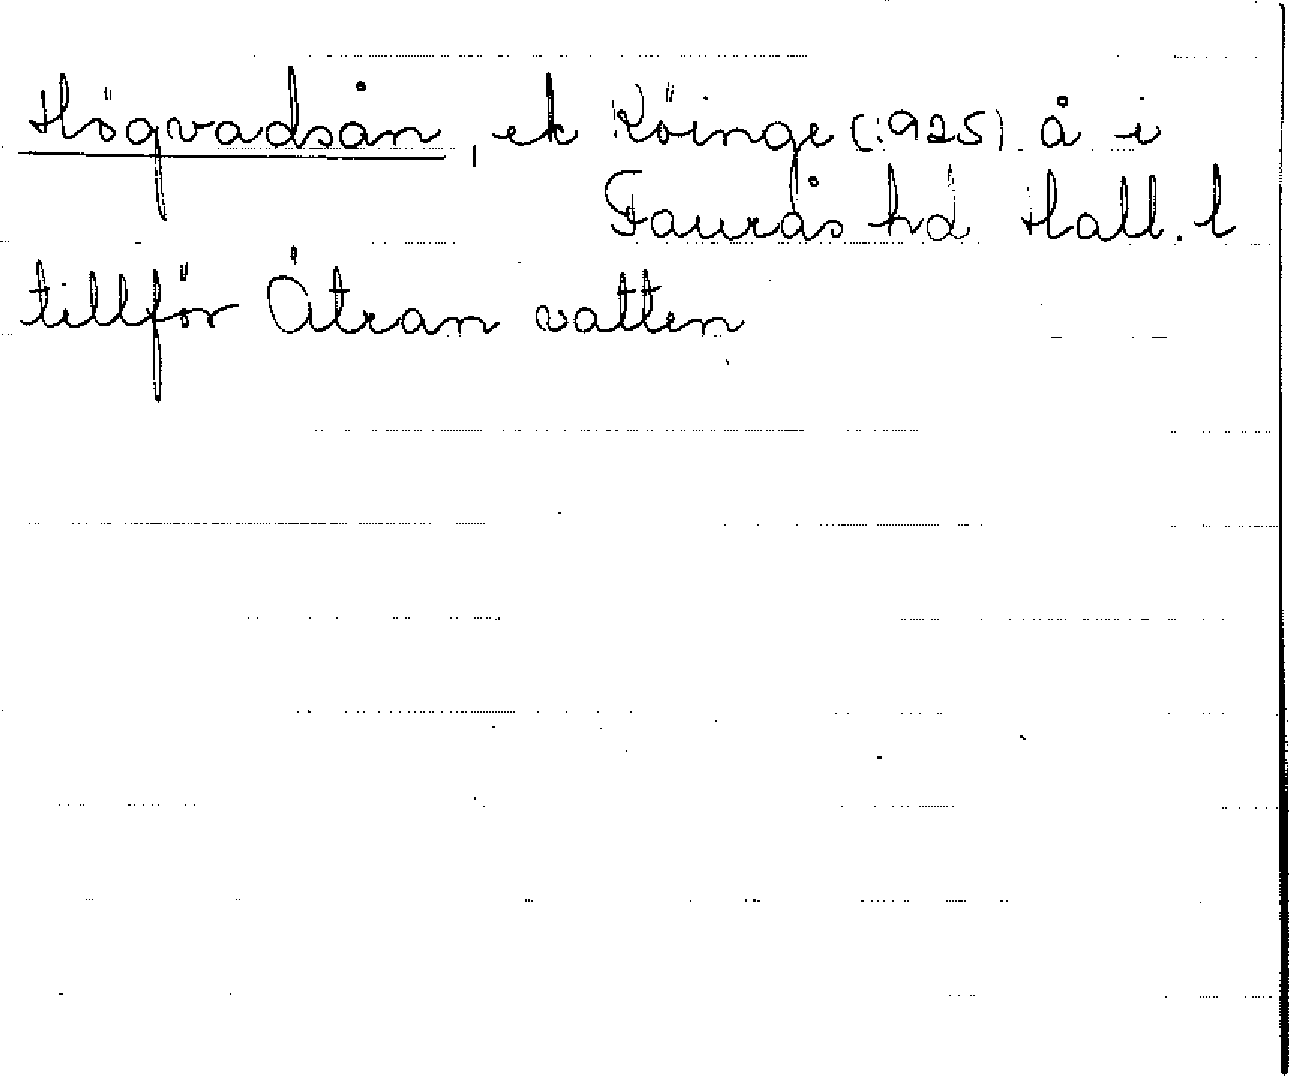 Högvadsån, ek Köinge (1925) å i
Faurås hd Hall. l
tillför Ätran vatten